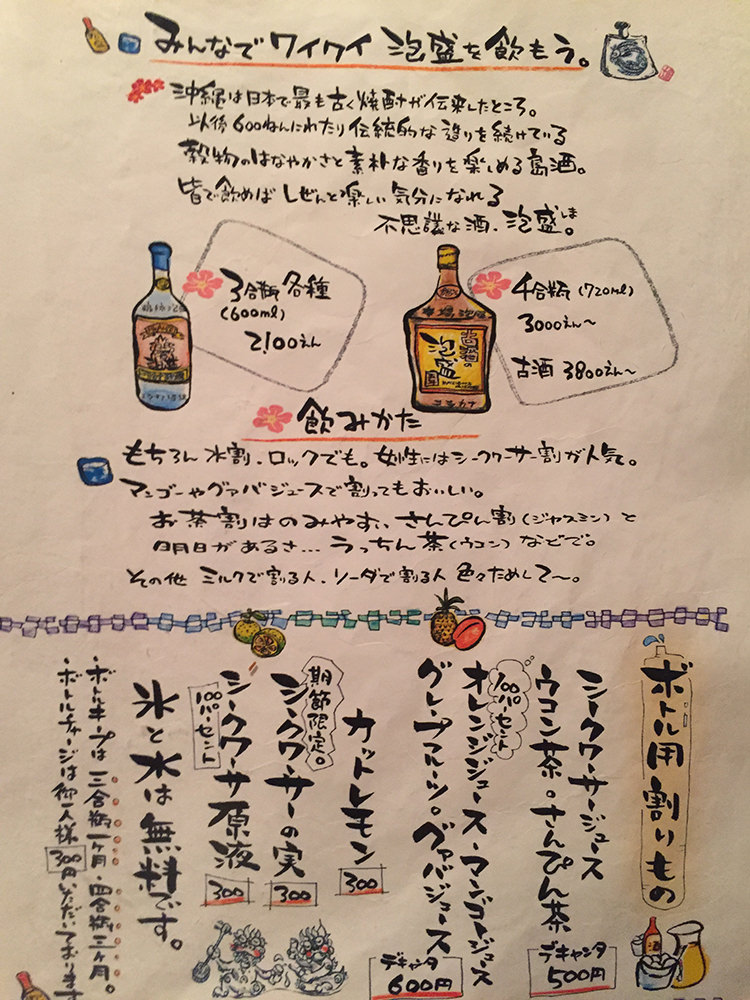 みんなでワイワイ 泡盛を飲もう。
沖縄は日本で最も古く焼酎が伝来したところ。
以後600ねんにわたり伝統的な造りを続けている
穀物のはなやかさと素朴な香りを楽しめる島酒。
皆で飲めばしぜんと楽しい気分になれる
不思議な酒、泡盛。
しま
3合瓶 各種
(600ml)
2,100えん
4合瓶 (720ml)
3000えん〜
古酒 3800えん〜
泡盛
飲みかた
もちろん 水割、ロックでも。女性にはシークワーサー割が人気。
マンゴーやグァバジュースで割ってもおいしい。
お茶割はのみやすい、さんぴん割(ジャスミン)と
明日があるさ…うっちん茶(ウコン)などで。
その他 ミルクで割る人、ソーダで割る人 色々ためして〜。
ボトル用割りもの
シークワーサージュース
ウコン茶・さんぴん茶
デキャンタ
500円
100パーセント
オレンジジュース・マンゴージュース
グレープフルーツ。グァバジュース
デキャンタ
600円
カットレモン
300
期節限定。
シークワーサーの実
300
シークワーサ原液
100パーセント
300
氷と水は無料です。
・ボトルキープは三合瓶一ヶ月・四合瓶三ヶ月。
・ボトルチャージは御一人様300円いただいております
酒